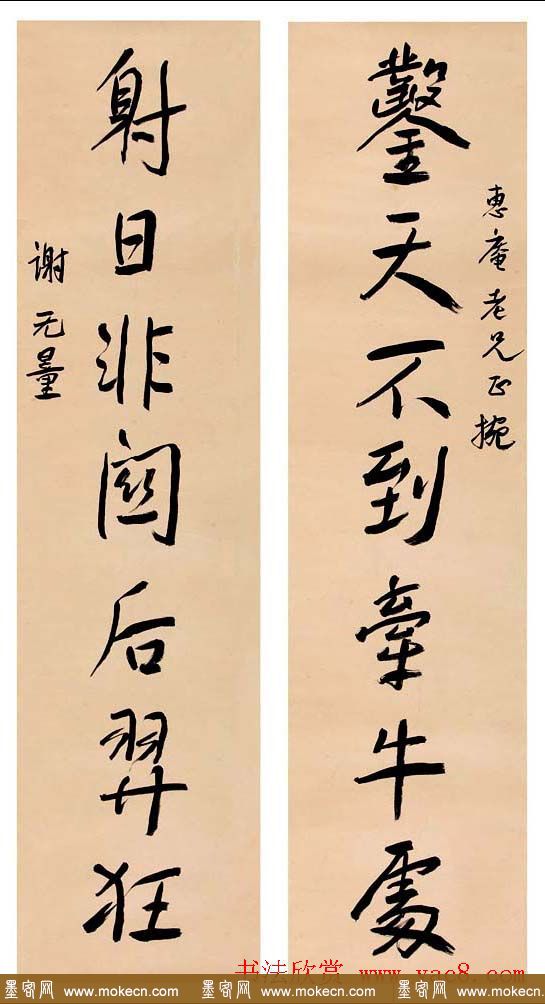 惠庵老兄正挽
鑿天不到牽牛處
射日非關后羿狂
谢无量
书法欣赏 www.yac8.com
墨客网 www.mokecn.com 墨客网 www.mokecn.com 墨客网 www.mokecn.com